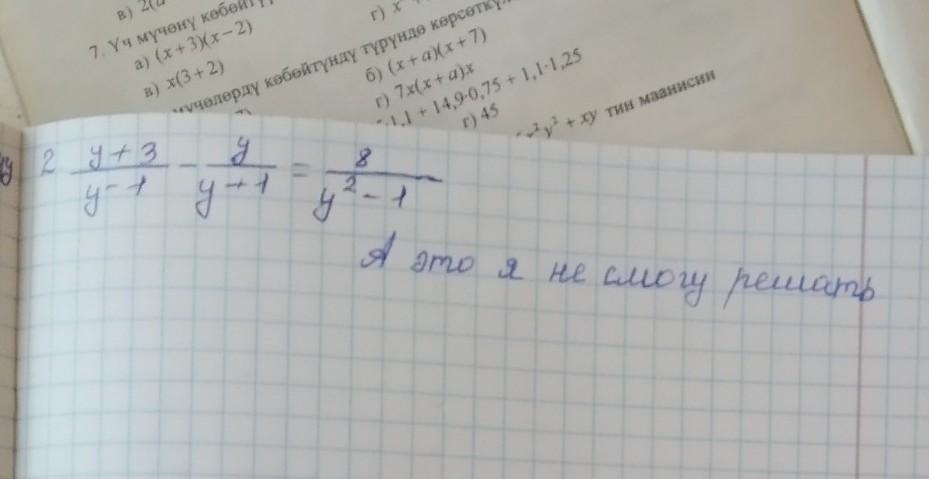 в) 2(а
г) x
7. Үч мүчөнү көбөйтү
а) (x+3)(x−2)
б) (x+a)(x+7)
в) x(3+2)
г) 7x(x+a)x
мүчөлөрдү көбөйтүндү түрүндө көрсөткү
1,1 + 14,9·0,75 + 1,1·1,25
г) 45
x²y² + xy тин маанисин
2 (y+3)/(y-1) - y/(y+1) = 8/(y²-1)
А это я не смогу решать